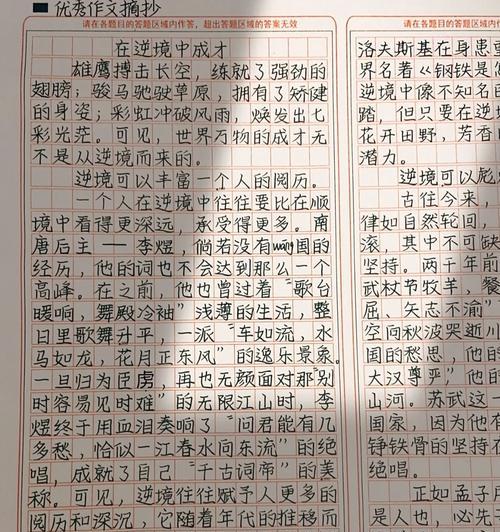 ■优秀作文摘抄
请在各题目的答题区域内作答，超出答题区域的答案无效
请在各题目的答题区域内
在逆境中成才
雄鹰搏击长空，练就了强劲的
翅膀；骏马驰骋草原，拥有了矫健
的身姿；彩虹冲破风雨，焕发出七
彩光芒。可见，世界万物的成才无
不是从逆境而来的。
逆境可以丰富一个人的阅历。
一个人在逆境中往往要比在顺
境中看得更深远，承受得更多。南
唐后主——李煜，倘若没有wáng国的
经历，他的词也不会达到那么一个
高峰。在之前，他也曾过着“歌台
暖响，舞殿冷袖”浅薄的生活，整
日里歌舞升平，一派“车如流，水
马如龙，花月正东风”的逸乐景象。
一旦归为臣虏，再也无颜面对那“别
时容易见时难”的无限江山时，李
煜终于用血泪奏响了“问君能有几
多愁，恰似一江春水向东流”的绝
唱，成就了自己“千古词帝”的美
称。可见，逆境往往赋予人更多的
阅历和深沉，它随着年代的推移而
洛夫斯基在身患重
界名著《钢铁是怎
逆境中像不知名的
踏，但只要在逆境
花开田野，芳香
潜力。
逆境可以彪
古往今来，
律如自然轮回，
滚，其中不可缺
坚持。两千年前
武杖节牧羊，餐
屈、矢志不渝”
空向秋波哭逝川
国的愁思，他的
大汉尊严”他的
山河。苏武这一
国家，因为他有
铮铁骨的坚持在
绝唱。
正如孟子所
是人也，必先